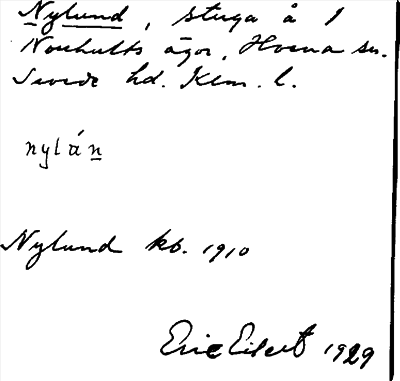 Nylund, stuga å 1
Norhults ägor, Hvena sn.
Sevede hd. Klm. l.
nylán
Nylund kb. 1910
Eric Elsert 1929